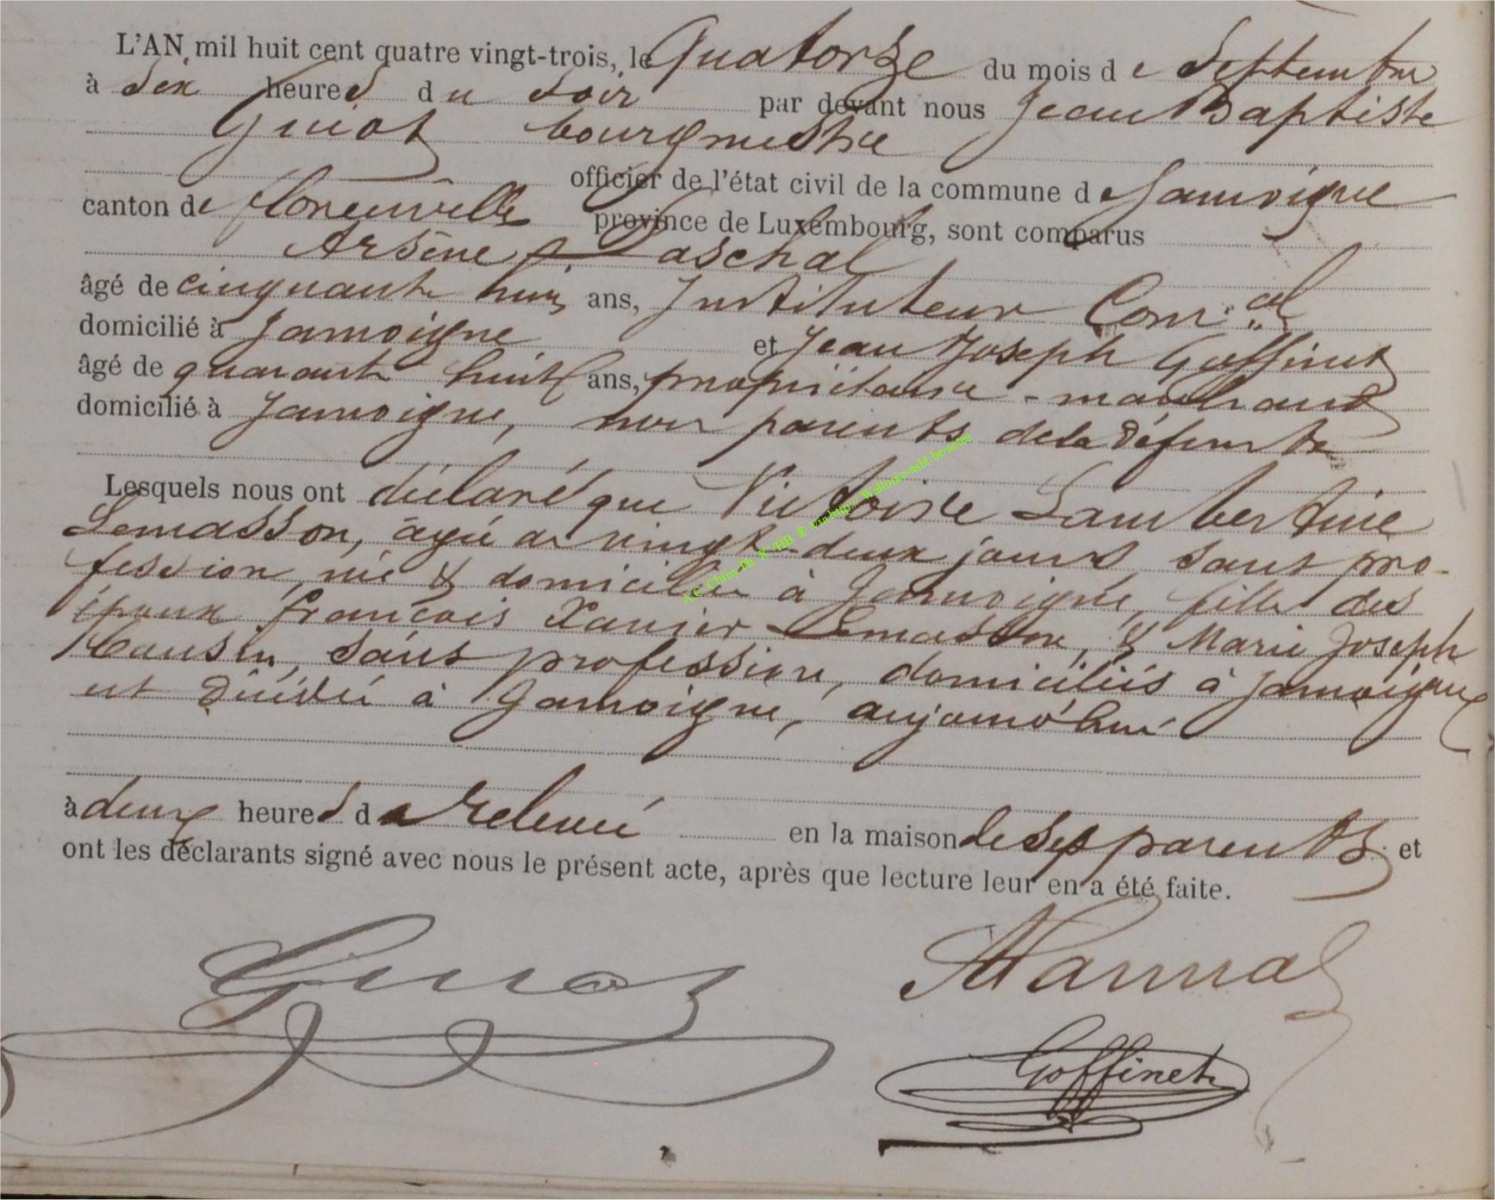 L'AN mil huit cent quatre vingt-trois, le Quatorze du mois de Septembre
à six heures du Soir par devant nous Jean Baptiste
Guiot bourgmestre
officier de l'état civil de la commune de Jamoigne
canton de florenville province de Luxembourg, sont comparus
Arsène Paschal
âgé de cinquante huit ans, Instituteur Com.al
domicilié à Jamoigne et Jean Joseph Goffinet
âgé de quarante huit ans, propriétaire - marchand
domicilié à Jamoigne, non parents de la défunte
Lesquels nous ont déclaré que Victoire Lambertine
Lemasson, âgée de vingt-deux jours, sans pro-
fession, née & domiciliée à Jamoigne, fille des
époux françois Xavier Lemasson, & Marie Joseph
sans profession, domiciliés à Jamoigne
est décédée à Jamoigne, aujourd'hui
à deux heures de relevée en la maison de ses parents et
ont les déclarants signé avec nous le présent acte, après que lecture leur en a été faite.
Guiot
Goffinet